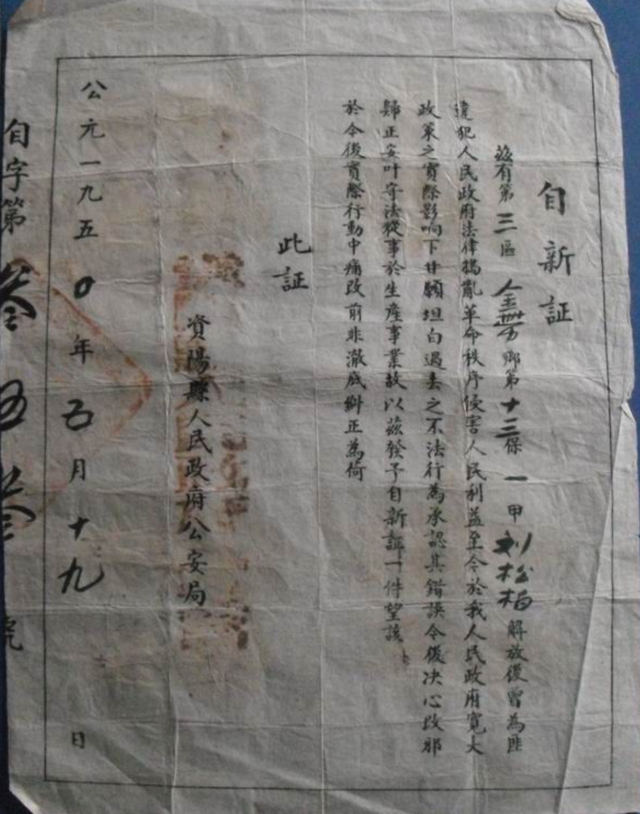 自新証
茲有第三區金帶鄉第十三保一甲刘松柏解放後曾為匪
違犯人民政府法律搗亂革命秩序侵害人民利益至今於我人民政府寬大
政策之實際影响下甘願坦白過去之不法行為承認其錯誤今後決心改邪
歸正安叶守法從事於生產事業故以茲發予自新証一件望該
於今後實際行動中痛改前非澈底糾正為荷
此証
資陽縣人民政府公安局
公元一九五0年五月十九日
自字第叁五叁號